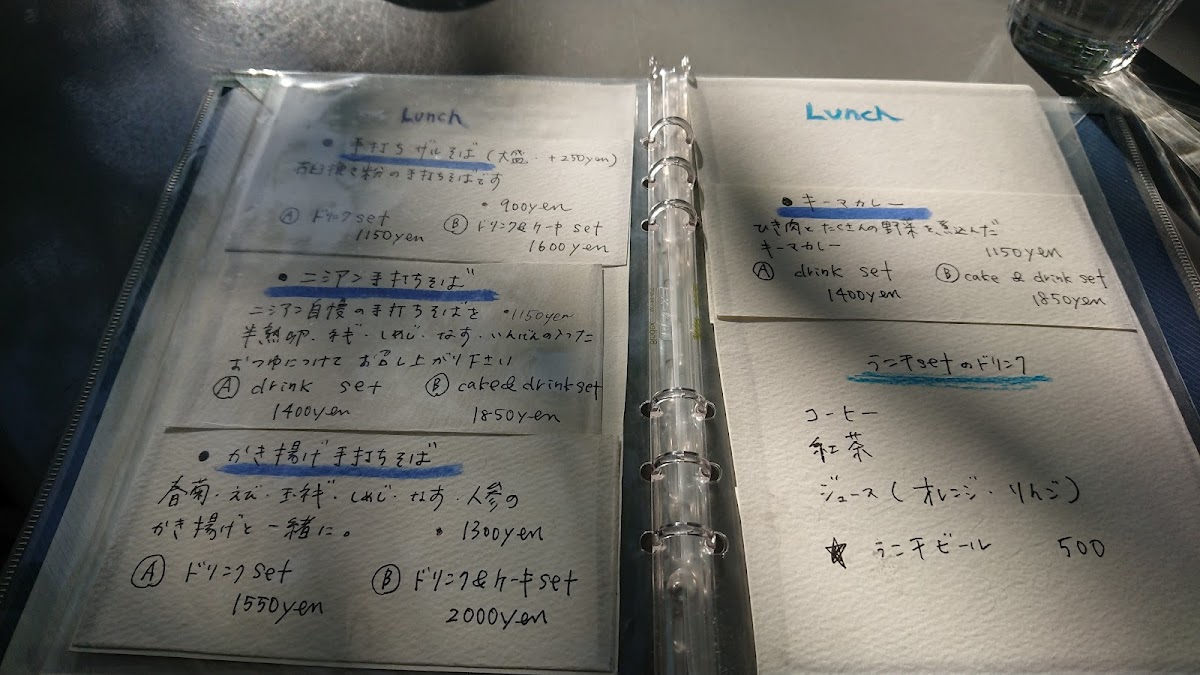 Lunch
● 手打ちザルそば (大盛・+250yen)
石臼挽き粉の手打ちそばです
・900yen
Ⓐ ドリンクset
1150yen
Ⓑ ドリンク&ケーキ set
1600yen
● ニシアン手打ちそば
ニシアン自慢の手打ちそばを ・1150yen
半熟卵・ネギ・しめじ・なす・いんげんの入った
おつゆにつけて お召し上がり下さい
Ⓐ drink set
1400yen
Ⓑ cake&drink set
1850yen
● かき揚げ手打ちそば
春菊・えび・玉ネギ・しめじ・なす・人参の
かき揚げと一緒に。 ・1300yen
Ⓐ ドリンクset
1550yen
Ⓑ ドリンク&ケーキset
2000yen
Lunch
● キーマカレー
ひき肉とたくさんの野菜を煮込んだ
キーマカレー 1150yen
Ⓐ drink set
1400yen
Ⓑ cake & drink set
1850yen
ランチsetのドリンク
コーヒー
紅茶
ジュース(オレンジ・りんご)
☆ ランチビール 500